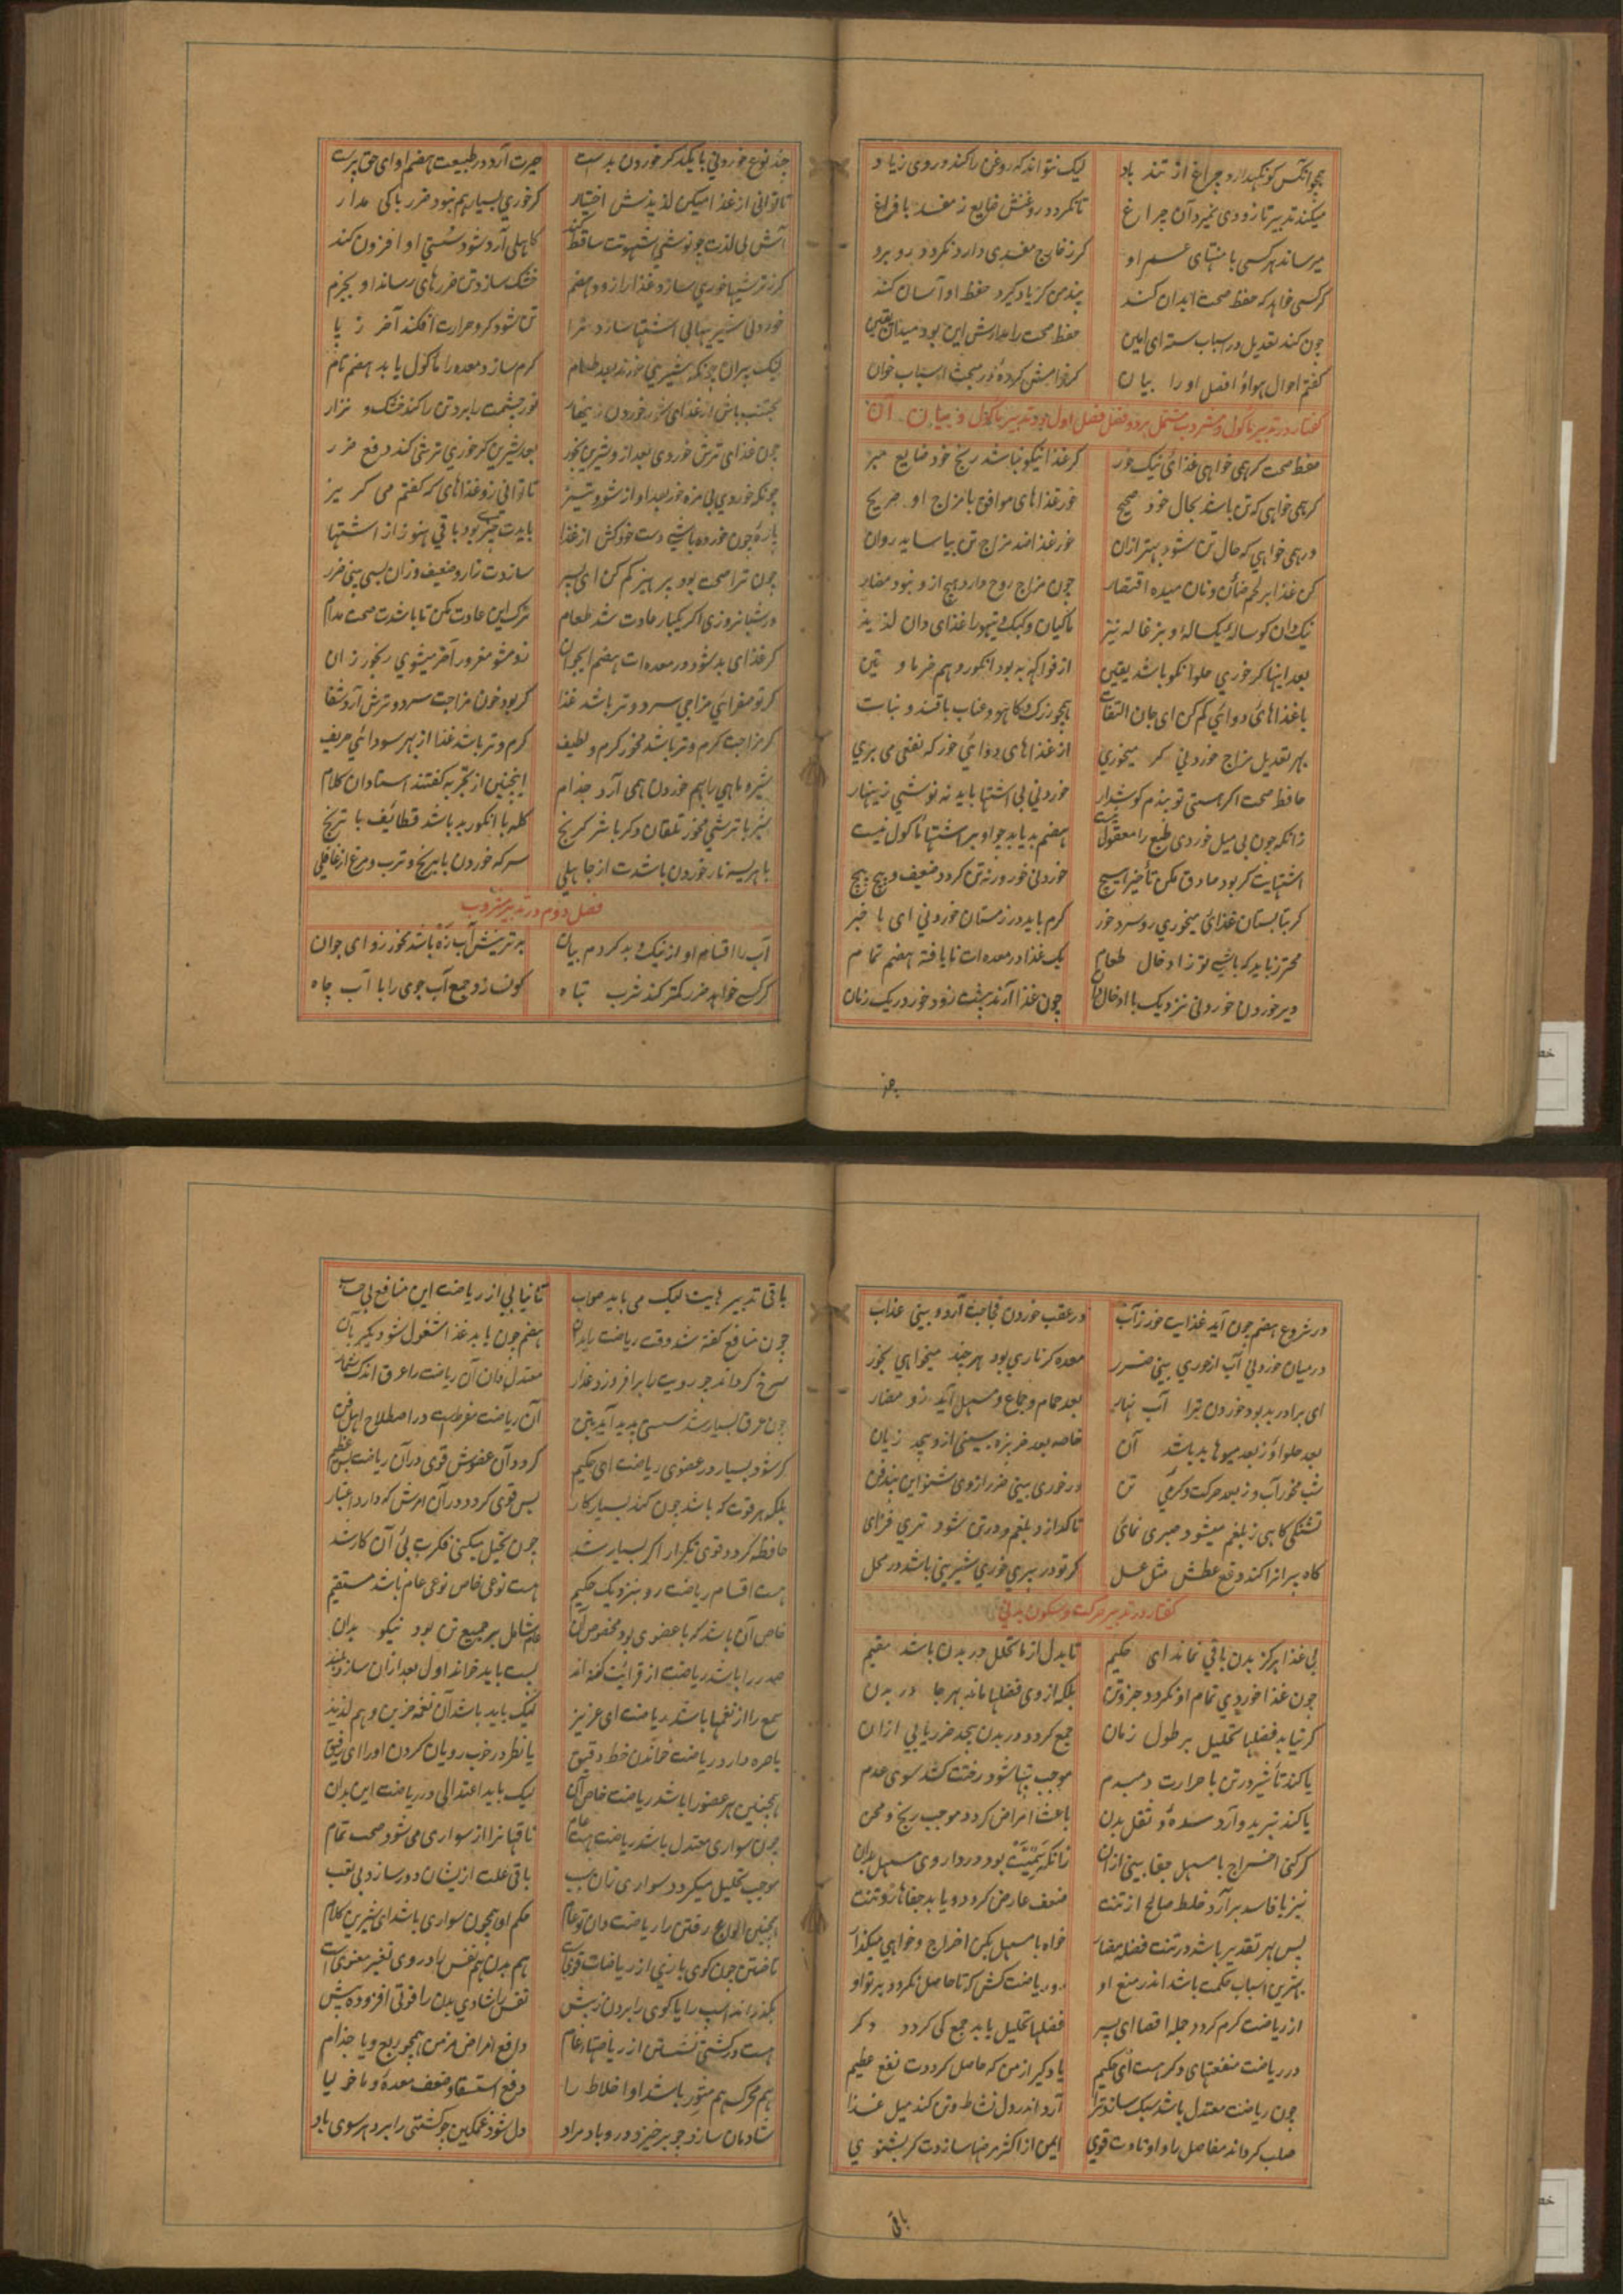 همچو آنکس کو نگهدارد چراغ از تند باد لیک نتواند که روغن را کند در وی زیاد
میکند تدبیر تا زودی نمیرد آن چراغ تا نگردد روغنش ضایع ز مفسد با فراغ
میرساند هر کسی با منتهای عمر او گر ز خارج مفسدی دارد نگردد روبرو
هر کسی خواهد که حفظ صحت ابدان کند پند من گر یاد گیرد حفظ او آسان کند
چون کند تعدیل در اسباب سته ای امین حفظ صحت را مدارش این بود میدان یقین
گفتم احوال هوا و افضل او را بیان گر فرامش کرده در مبحث اسباب خوان
گفتار در تدبیر ماکول و مشروب مشتمل بر دو فصل فصل اول در تدبیر ماکول و بیان آن
حفظ صحت گر همی خواهی غذای نیک خور گر غذا نیکو نباشد رنج خود ضایع مبر
گر همی خواهی که تن باشد بحال خود صحیح خور غذاهای موافق با مزاج او صریح
ور همی خواهی که حال تن شود بهتر ازان خور غذا ضد مزاج تن بیاساید روان
کن غذا بر لحم ضأن و نان میده اقتصار چون مزاج روح دارد هیچ ازو نبود مضار
نیک دان گوساله یکساله و بزغاله نیز ماکیان و کبک و تیهو را غذای دان لذیذ
بعد اینها گر خوری حلوا نکو باشد یقین از فواکه به بود انگور و هم خرما و تین
با غذاهای دوائی کم کن ای جان التفات همچو زرک و کاهو و عناب با قند و نبات
بهر تعدیل مزاج خوردنی گر میخوری از غذاهای دوائی خور که نفعی می بری
حافظ صحت اگر هستی تو پندم گوشدار خوردنی بی اشتها باید نه نوشی زینهار
زانکه چون بی میل خوردی طبع را معقول نیست هضم بد یابد چو او بر اشتها ماکول نیست
اشتهایت گر بود صادق مکن تأخیر هیچ خوردنی خور ورنه تن گردد ضعیف و پیچ پیچ
گر بتابستان غذائی میخوری رو سرد خور گرم باید در زمستان خوردنی ای با خبر
محترز باید که باشی تو ز ادخال طعام یک غذا در معده ات نا یافته هضم تمام
دیر خوردن خوردنی نزدیک با ادخال دان چون غذا آرند پیشت زود خور در یک زمان
چند نوع خوردنی با یکدگر خوردن بدست حیرت آرد در طبیعت هضم او ای حق پرست
تا توانی از غذا میکن لذیذش اختیار گر خوری بسیار هم نبود ضرر باکی مدار
آش بی لذت چو نوشی شهوتت ساقط کند کاهلی آرد شود سستی او افزون کند
گر ز ترشیها خوری سازد غذا را زود هضم خشک سازد تن ضررهای رساند او بجزم
خوردنی شیرینها بی اشتها سازد ترا تن شود گرم و حرارت افکند آخر ز پا
لیک پیران چونکه شیرینی خورند بعد طعام گرم سازد معده را ماکول یابد هضم تام
مجتنب باش از غذای شور خوردن زینهار نور چشمت را برد تن را کند خشک و نزار
چون غذای ترش خوردی بعد ازو شیرین بخور بعد شیرین گر خوری ترشی کند دفع ضرر
چونکه خوردی بی مزه خور بعد او از شور و تیز تا توانی زو غذاهای که گفتم می گریز
پاره چون خورده باشی دست خود کش از غذا بایدت چیزی بود باقی هنوز از اشتها
چون ترا صحت بود پرهیز کم کن ای پسر سازدت زار و ضعیف و زان بسی بینی ضرر
در شبانروزی اگر یکبار عادت شد طعام ترک این عادت مکن تا باشدت صحت مدام
گر غذای بد شود در معده ات هضم ای جوان زو مشو مغرور آخر میشوی رنجور زان
گر تو صفرائی مزاجی سرد و تر باشد غذا گر بود خون مزاجت سرد و ترش آرد شفا
گر مزاجت گرم و تر باشد مخور گرم و لطیف گرم و تر باشد غذا از بهر سودائی حریف
شیر و ماهی را بهم خوردن همی آرد جذام اینچنین از تجربه گفتند استادان کلام
شیر با ترشی مخور تلقان دگر با شیر برنج کله با انگور بد باشد قطایف با ترنج
با هریسه نار خوردن باشدت از جاهلی سرکه خوردن با برنج و ترب و مرغ از غافلی
فصل دوم در تدبیر مشروب
آب را اقسام او از نیک و بد کردم بیان بدترینش آب زه باشد مخور زو ای جوان
هر که خواهد ضرر کمتر کند شرب تباه گو نسازد جمع آب جوی را با آب چاه
در شروع هضم چون آید غذایت خور ز آب در عقب خوردن فجاجت آرد و بینی عذاب
در میان خوردنی آب ار خوری بینی ضرر معده گر ناری بود هر چند میخواهی بخور
ای برادر بد بود خوردن ترا آب نهار بعد حمام و جماع و مسهل آید زو مضار
بعد حلوا و ز بعد میوها بد باشد آن خاصه بعد خربزه بینی ازو بیحد زیان
شب مخور آب و ز بعد حرکت و گرمی تن ور خوری بینی ضرر از وی شنو این پند من
تشنگی گاهی ز بلغم میشود صبری نمای تا گدازد بلغم و در تن شود تری فزای
گاه پیرانرا کند دفع عطش مثل عسل گر تو در پیری خوری شیرینی باشد در محل
گفتار در تدبیر حرکت و سکون بدنی
بی غذا هرگز بدن باقی نماند ای حکیم تا بدل از ما تحلل در بدن باشد مقیم
چون غذا خوردی تمام او نگردد جزو تن بلکه از وی فضلها ماند بهر جا در بدن
گر نیابد فضلها تحلیل بر طول زمان جمع گردد در بدن بیحد ضرر یابی ازان
یا کند تأثیر در تن با حرارت دمبدم موجب تبها شود رختت کشد سوی عدم
یا کند تبرید و آرد سده و ثقل بدن باعث امراض گردد موجب رنج و محن
گر کنی اخراج با مسهل جفا بینی ازان زانکه سمیت بود در داروی مسهل بدان
نیز با فاسد برآرد خلط صالح از تنت ضعف عارض گردد و یابد جفاها زو تنت
پس بهر تقدیر باشد در تنت فضله مضار خواه با مسهل بکن اخراج و خواهی میگذار
بهترین اسباب حکمت باشد اندر منع او رو ریاضت کش که تا حاصل نگردد بر تو او
از ریاضت گرم گردد جمله اعضا ای پسر فضلها تحلیل یابد جمع کی گردد دگر
در ریاضت منفعتهای دگر هست ای حکیم یاد گیر از من که حاصل گرددت نفع عظیم
چون ریاضت معتدل باشد سبک سازد ترا آرد اندر دل نشاط و تن کند میل غذا
صلب گرداند مفاصل را و اوتادت قوی ایمن از اکثر مرضها سازدت گر بشنوی
باقی تدبیرهایت لیک می باید صواب تا نیابی از ریاضت این منافع بی حساب
چون منافع گفته شد وقت ریاضت را بدان هضم چون یابد غذا مشغول شو دیگر بآن
سرخ گرداند چو رویت را برافروزد عذار معتدل دان آن ریاضت را عرق اندک شمار
چون عرق بسیار شد سستی پدید آید بتن آن ریاضت مفرطست در اصطلاح اهل فن
گر شود بسیار در عضوی ریاضت ای حکیم گردد آن عضوش قوی در آن ریاضت بس عظیم
بلکه هر قوت که باشد چون کند بسیار کار بس قوی گردد در آن امرش که دارد اعتبار
حافظه گردد قوی تکرار اگر بسیار شد چون تخیل میکنی فکرت پی آن کار شد
هست اقسام ریاضت رو بنزدیک حکیم هست نوعی خاص نوعی عام باشد مستقیم
خاص آن باشد که با عضوی بود مخصوص آن عام شامل بر جمیع تن بود نیکو بدان
صدر را باشد ریاضت از قرائت گفته اند پست باید خواند اول بعد ازان سازد بلند
سمع را از نغمها باشد ریاضت ای عزیز لیک باید باشد آن نغمه حزین و هم لذیذ
باصره دارد ریاضت خواندن خط دقیق یا نظر در خوب رویان کردن او را ای رفیق
همچنین هر عضو را باشد ریاضت خاص آن لیک باید اعتدالی در ریاضت این بدان
چون سواری معتدل باشد ریاضت هست عام ناقهانرا از سواری می شود صحت تمام
موجب تحلیل میگردد سواری زان سبب باقی علت ازیشان دور سازد بی تعب
همچنین انواع رفتن را ریاضت دان تو عام حکم او همچون سواری باشد ای شیرین کلام
تاختن چون گوی بازی از ریاضات قویست هم بدن هم نفس را در وی تغیر معنویست
بگذراند اسپ را یا گوی را بردن ز پیش نفس را شادی بدن را قوتی افزوده بیش
هست در کشتی نشستن از ریاضتهای عام دافع امراض مزمن همچو ربع و یا جذام
هم محرک هم مثور باشد او اخلاط را دفع استسقا و ضعف معده و ماخولیا
شادمان سازد چو برخیزد درو باد مراد دل شود غمگین چو کشتی را برد هر سوی باد
باقی